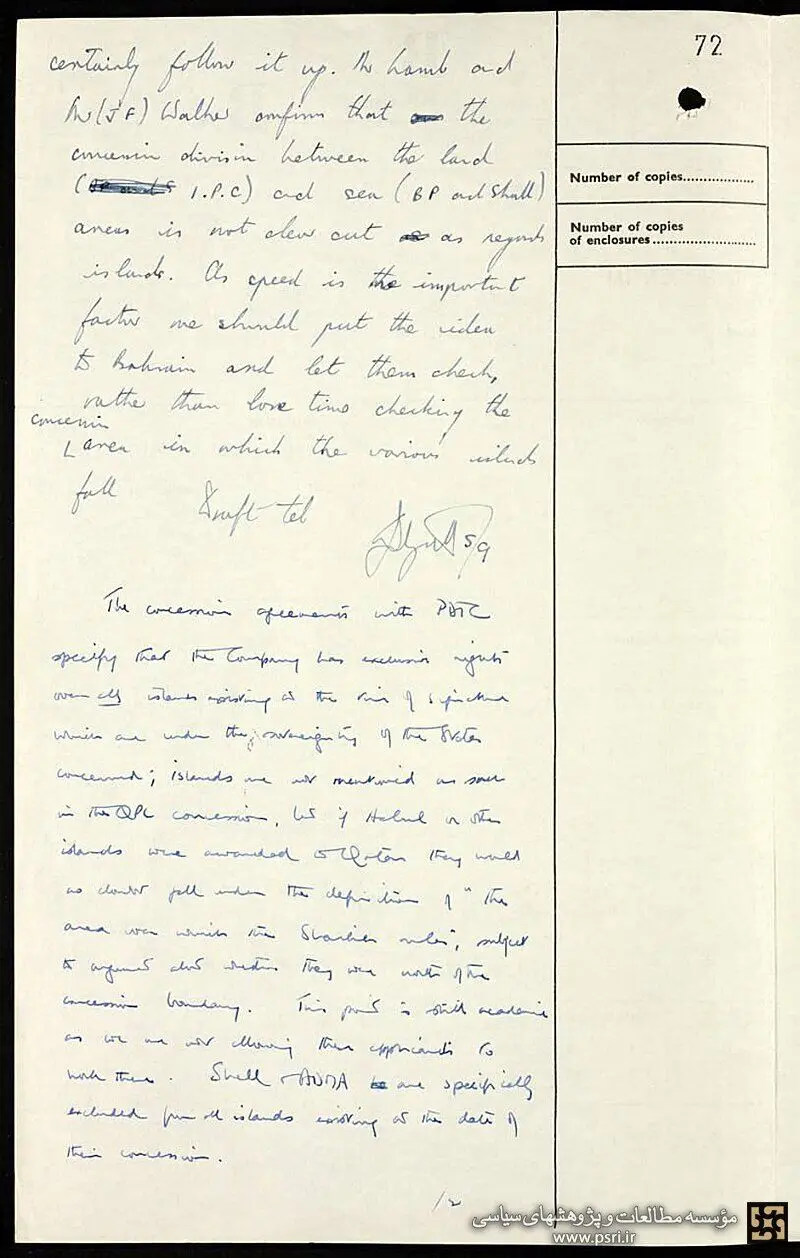 72
certainly follow it up. Mr Lamb and
Mr (J F) Walker confirm that the
concession division between the land
( I.P.C) and sea (BP and Shell)
areas is not clear cut as regards
islands. As speed is the important
factor we should put the idea
to Bahrain and let them check,
rather than lose time checking the
concession
area in which the various islands
fall
Draft tel
5/9
The concession agreements with PDTC
specify that the Company has exclusive rights
over all islands existing at the time of signature
which are under the sovereignty of the States
concerned; islands are not mentioned as such
in the QPC concession, but if Halul or other
islands were awarded to Qatar they would
no doubt fall under the definition of "the
area over which the Shaikh rules", subject
to argument about whether they were north of the
concession boundary. This point is still academic
as we are not allowing these applicants to
work there. Shell + ADMA are specifically
excluded from all islands existing at the date of
their concession.
Number of copies
Number of copies
of enclosures
مؤسسه مطالعات و پژوهشهای سیاسی
www.psri.ir